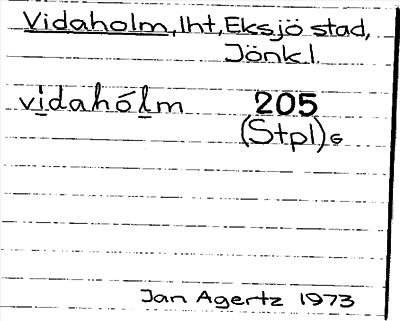 Vidaholm, lht, Eksjö stad,
Jönk l.
vidahólm 205
(Stpl)s
Jan Agertz 1973